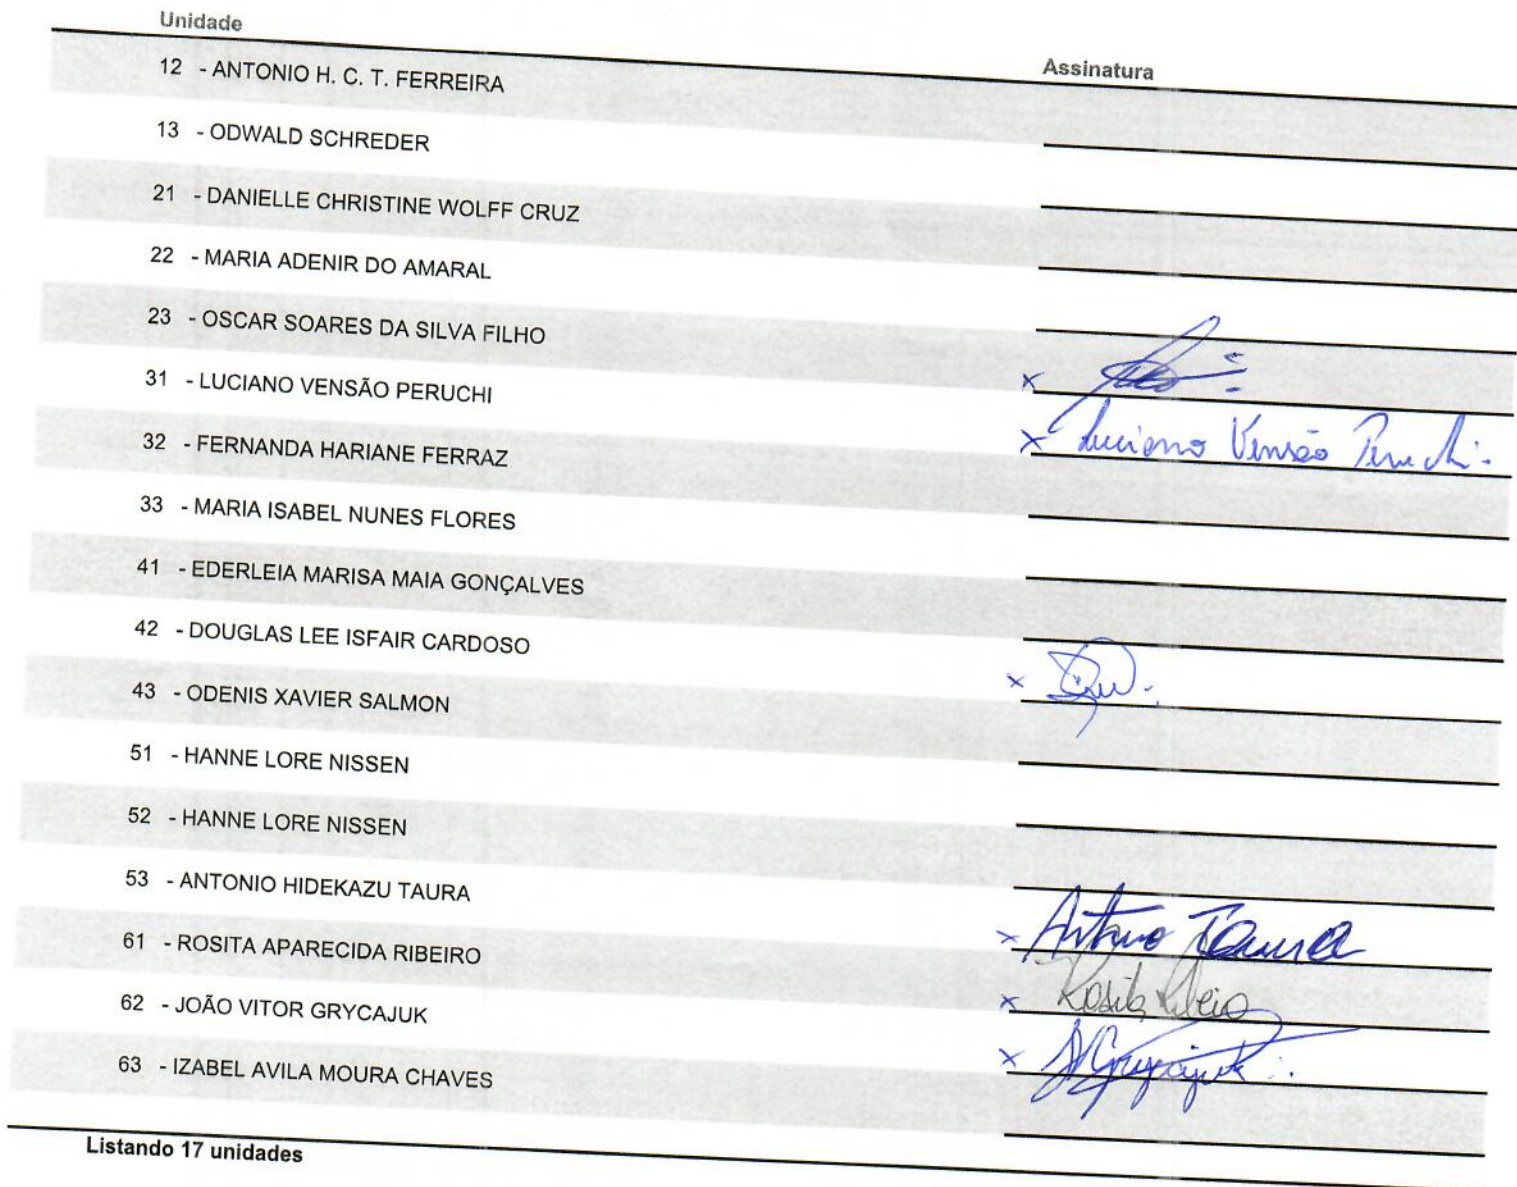 Unidade Assinatura
12 - ANTONIO H. C. T. FERREIRA
13 - ODWALD SCHREDER
21 - DANIELLE CHRISTINE WOLFF CRUZ
22 - MARIA ADENIR DO AMARAL
23 - OSCAR SOARES DA SILVA FILHO x
31 - LUCIANO VENSÃO PERUCHI x Luciano Vensão Peruchi
32 - FERNANDA HARIANE FERRAZ
33 - MARIA ISABEL NUNES FLORES
41 - EDERLEIA MARISA MAIA GONÇALVES
42 - DOUGLAS LEE ISFAIR CARDOSO x
43 - ODENIS XAVIER SALMON
51 - HANNE LORE NISSEN
52 - HANNE LORE NISSEN
53 - ANTONIO HIDEKAZU TAURA x Antonio Taura
61 - ROSITA APARECIDA RIBEIRO x Rosita Ribeiro
62 - JOÃO VITOR GRYCAJUK x Grycajuk
63 - IZABEL AVILA MOURA CHAVES
Listando 17 unidades